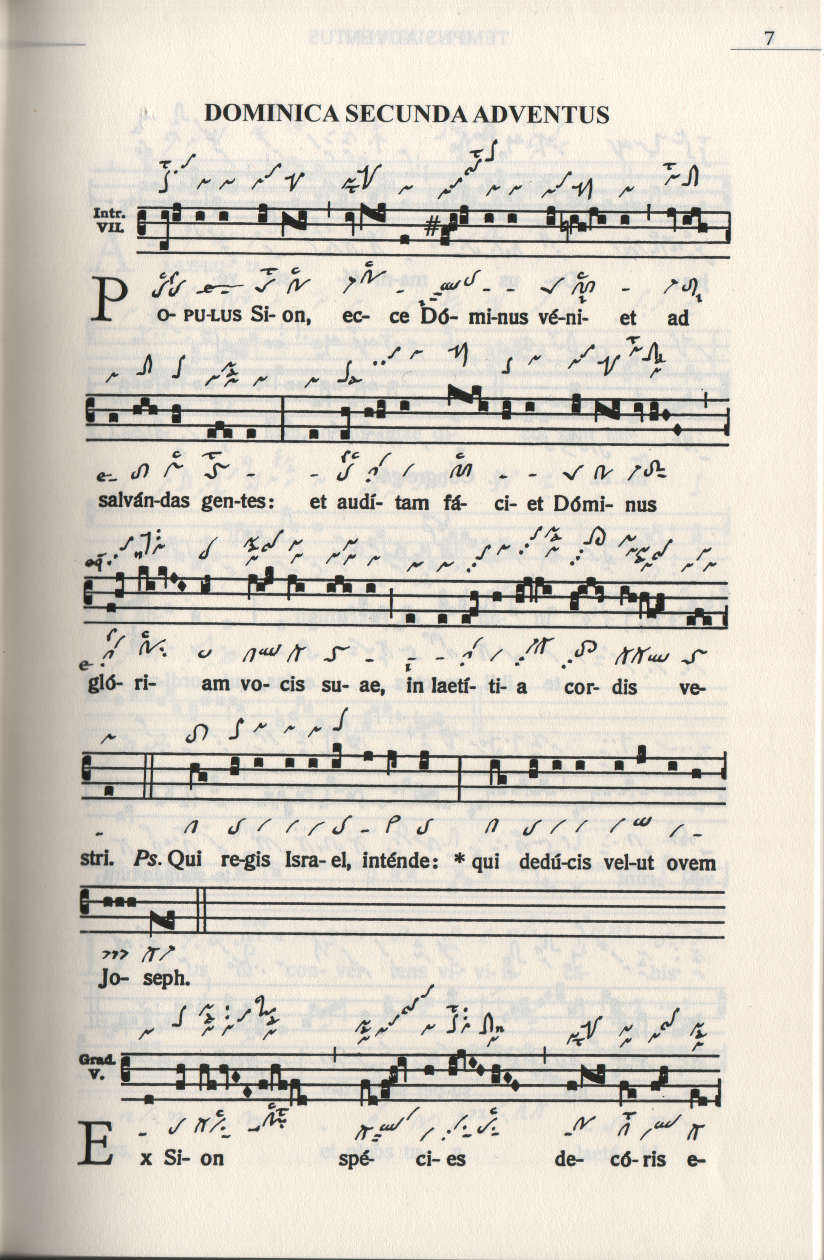 7
DOMINICA SECUNDA ADVENTUS
Intr.
VII.
PO- PU-LUS Si- on, ec- ce Dó- mi-nus vé-ni- et ad
salván-das gen-tes: et audí- tam fá- ci- et Dómi- nus
gló- ri- am vo- cis su- ae, in laetí- ti- a cor- dis ve-
stri. Ps. Qui re-gis Isra- el, inténde: * qui dedú-cis vel-ut ovem
Jo- seph.
Grad.
V.
Ex Si- on spé- ci- es de- có- ris e-